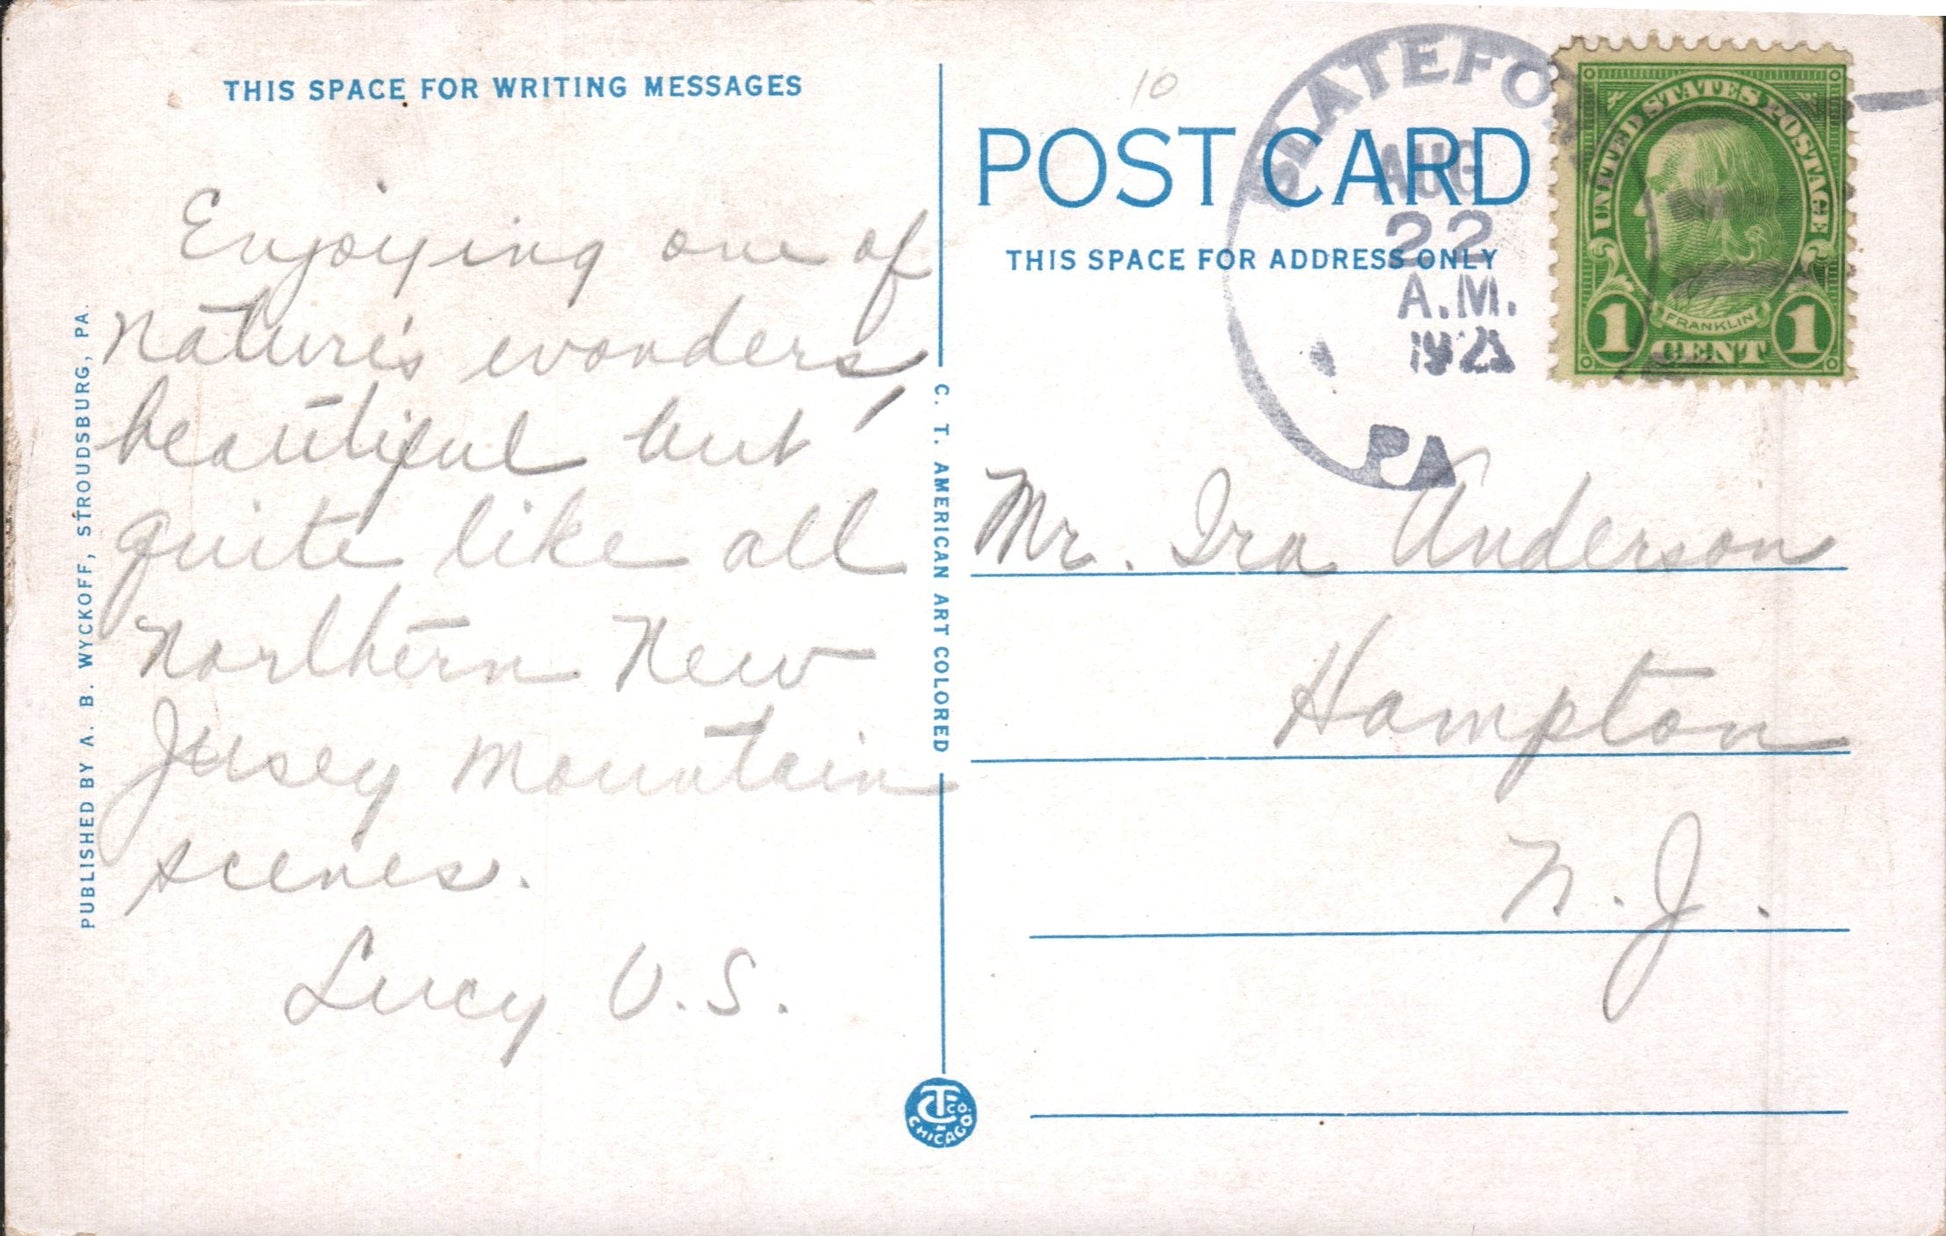 THIS SPACE FOR WRITING MESSAGES
Enjoying one of
Nature's wonders,
beautiful but
quite like all
Northern New
Jersey Mountain
scenes.
Lucy V.S.
PUBLISHED BY A. B. WYCKOFF, STROUDSBURG, PA.
C. T. AMERICAN ART COLORED
C.T. CO. CHICAGO
10
POST CARD
THIS SPACE FOR ADDRESS ONLY
AUG
22
A.M.
PA
UNITED STATES POSTAGE
FRANKLIN
1 CENT 1
Mr. Ira Anderson
Hampton
N.J.